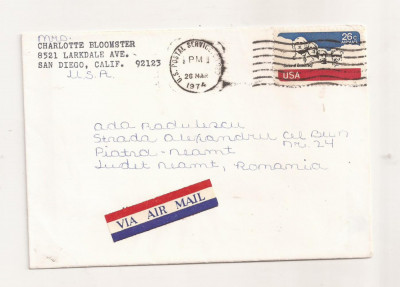 MRS.
CHARLOTTE BLOOMSTER
8521 LARKDALE AVE.
SAN DIEGO, CALIF. 92123
U.S.A.
U.S. POSTAL SERVICE
PM
28 MAR
1974
26c
USA
Ada Radulescu
Strada Alexandru cel Bun
Nr. 24
Piatra-Neamt
Judet Neamt, Romania
VIA AIR MAIL